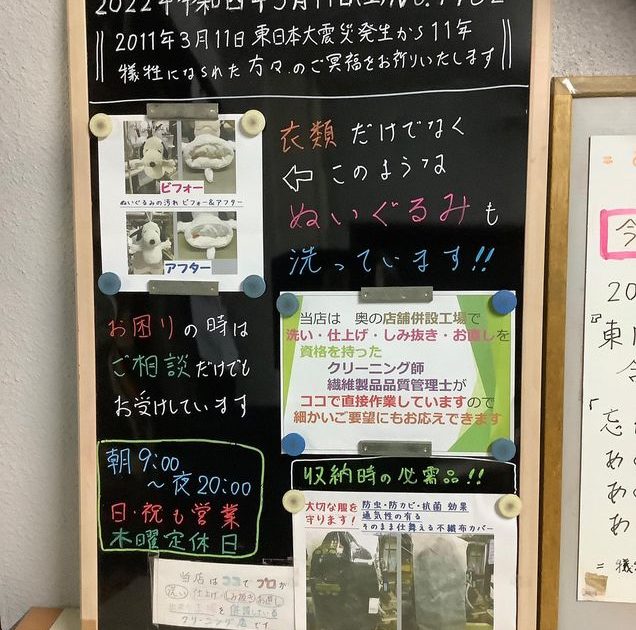 2022年令和四年3月11日
2011年3月11日東日本大震災発生から11年
犠牲になられた方々のご冥福をお祈りいたします
衣類だけでなく
⇦このような
ぬいぐるみも
洗っています!!
ビフォー
ぬいぐるみの汚れ ビフォー&アフター
アフター
お困りの時は
ご相談だけでも
お受けしています
当店は 奥の店舗併設工場で
洗い・仕上げ・しみ抜き・お直しを
資格を持った
クリーニング師
繊維製品品質管理士が
ココで直接作業していますので
細かいご要望にもお応えできます
朝9:00
~夜20:00
日・祝も営業
木曜定休日
収納時の必需品!!
大切な服を
守ります!
防虫・防カビ・抗菌 効果
通気性の有る
そのまま仕舞える不織布カバー
当店はココでプロが
洗い 仕上げ・しみ抜き お直し
併設している
クリーニング店です
今
20
『東
「忘
あの
あの
あ
= 犠